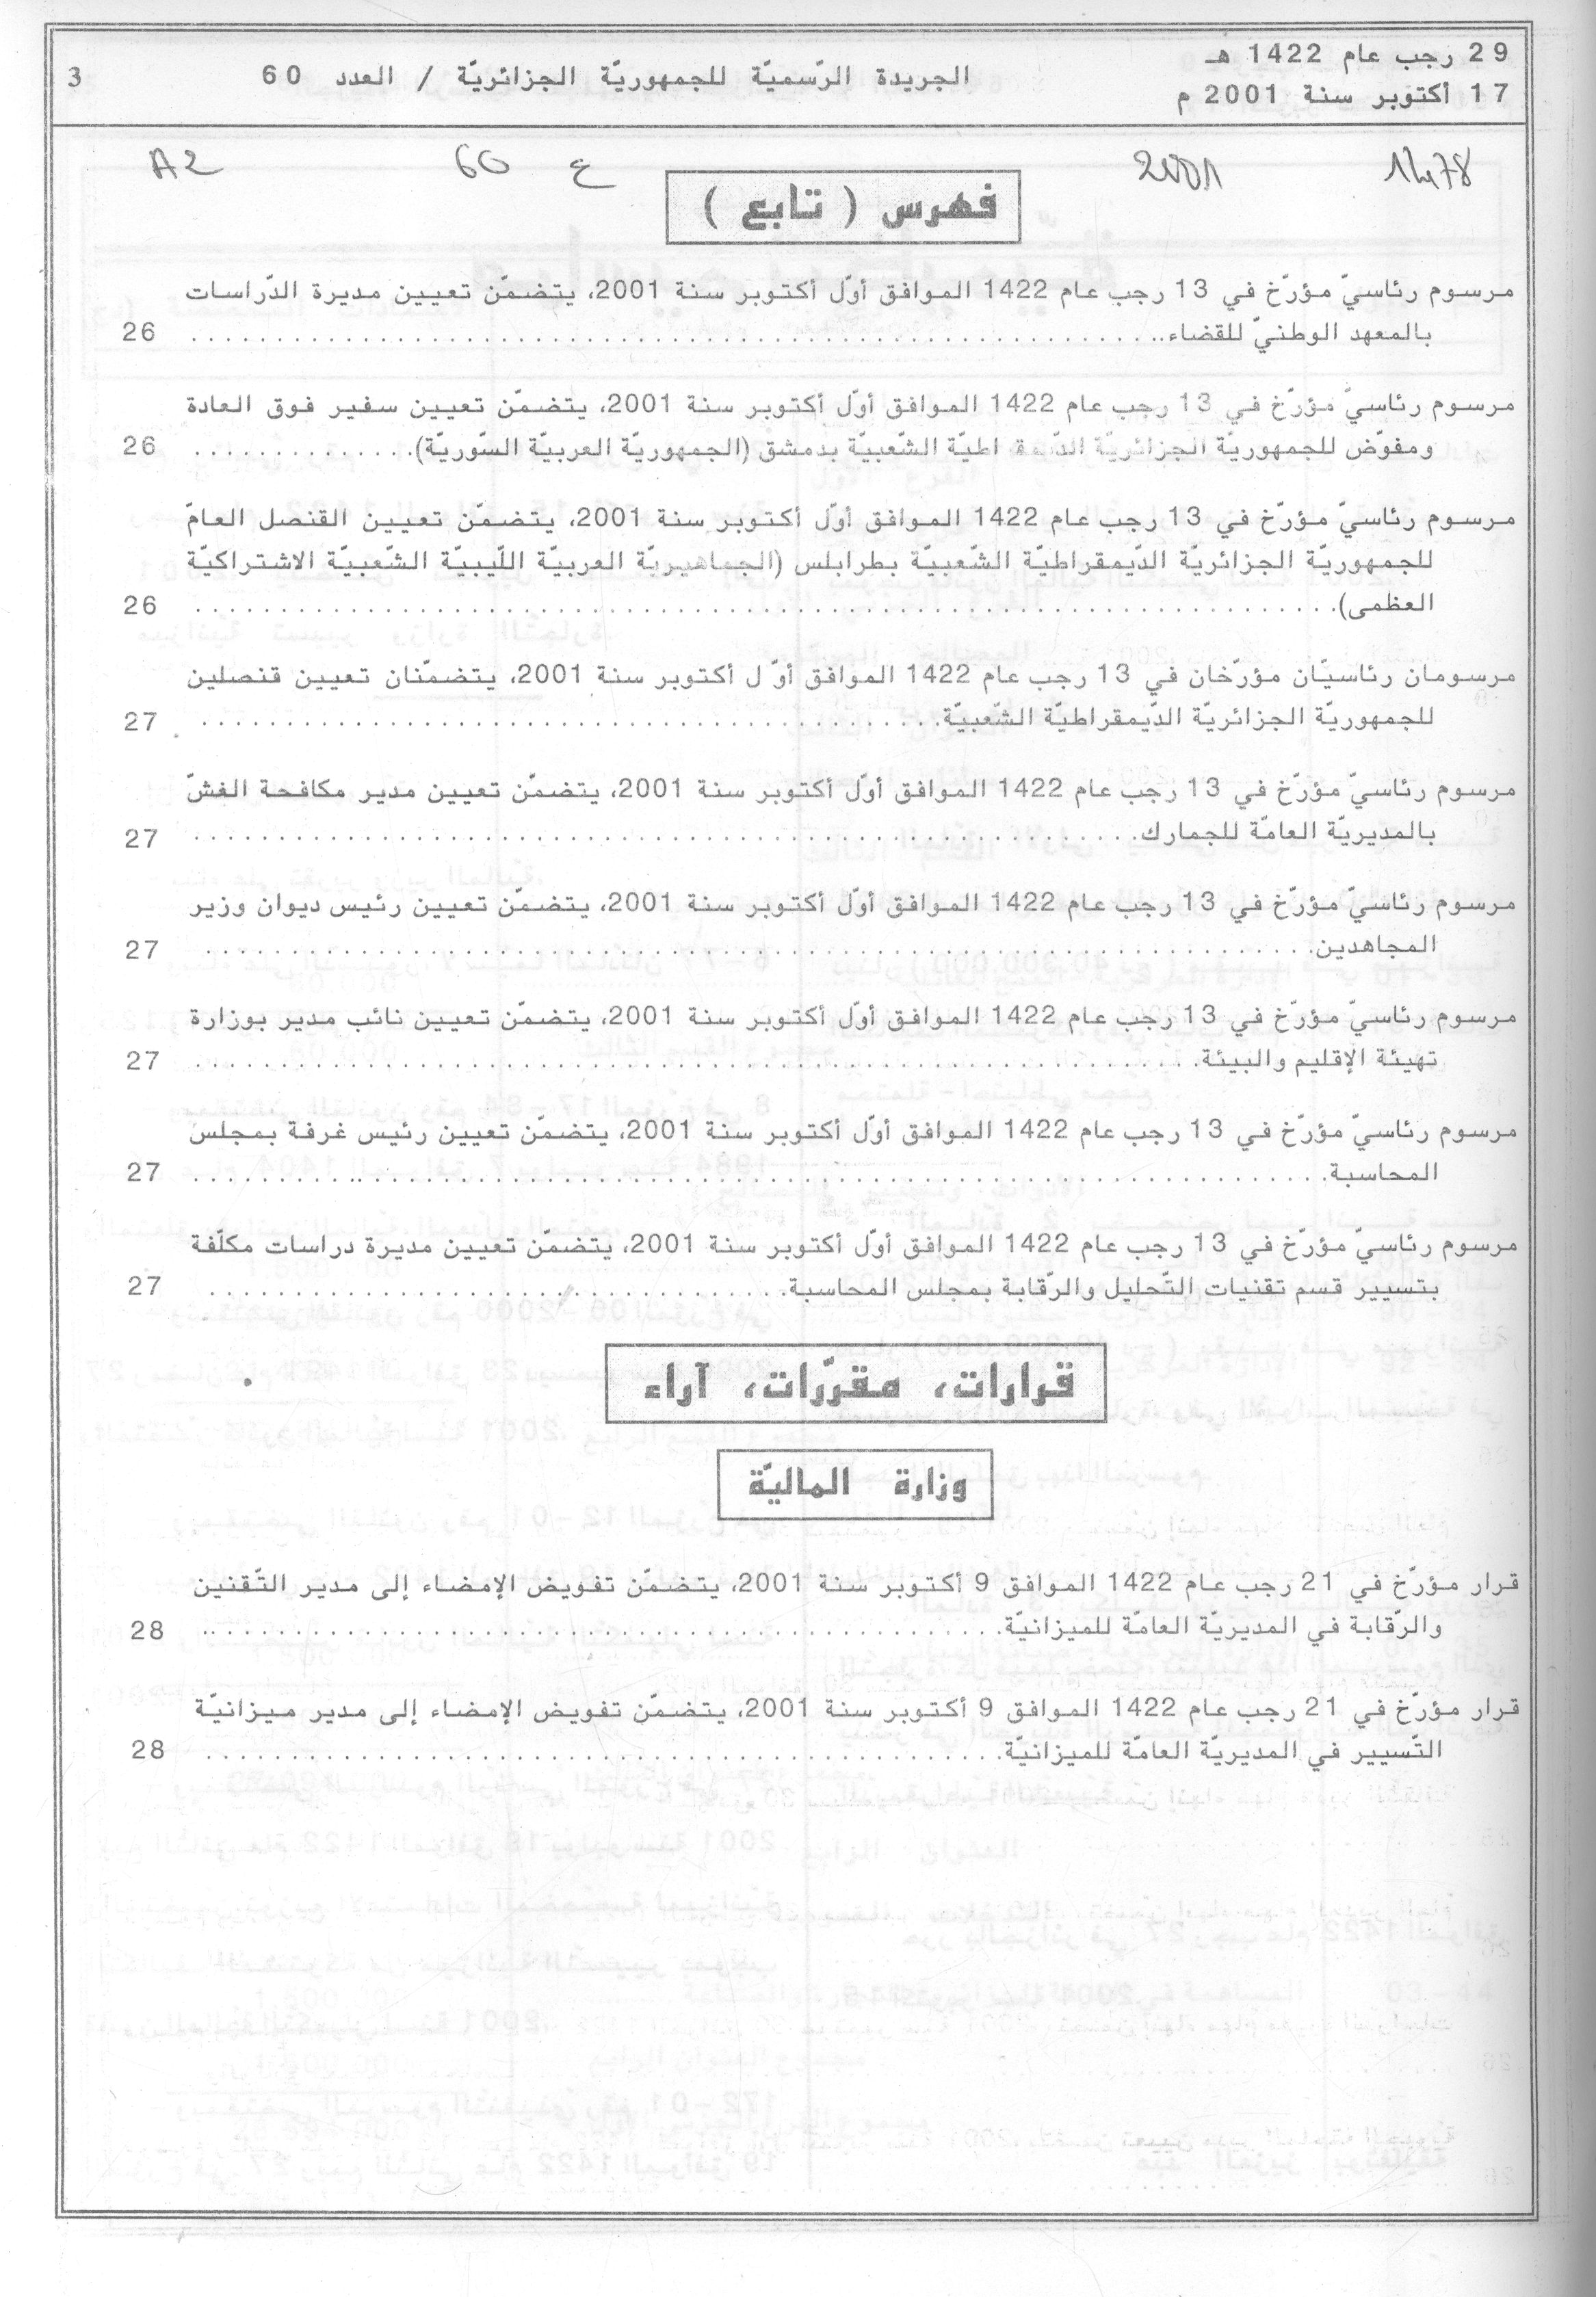 29 رجب عام 1422 هـ
17 أكتوبر سنة 2001 م
الجريدة الرّسميّة للجمهوريّة الجزائريّة / العدد 60
3
1478 2001 ع 60 A2
فهرس ( تابع )
مرسوم رئاسيّ مؤرّخ في 13 رجب عام 1422 الموافق أوّل أكتوبر سنة 2001، يتضمّن تعيين مديرة الدّراسات
بالمعهد الوطنيّ للقضاء.. 26
مرسوم رئاسيّ مؤرّخ في 13 رجب عام 1422 الموافق أوّل أكتوبر سنة 2001، يتضمّن تعيين سفير فوق العادة
ومفوّض للجمهوريّة الجزائريّة الدّيمقراطيّة الشّعبيّة بدمشق (الجمهوريّة العربيّة السّوريّة). 26
مرسوم رئاسيّ مؤرّخ في 13 رجب عام 1422 الموافق أوّل أكتوبر سنة 2001، يتضمّن تعيين القنصل العامّ
للجمهوريّة الجزائريّة الدّيمقراطيّة الشّعبيّة بطرابلس (الجماهيريّة العربيّة اللّيبيّة الشّعبيّة الاشتراكيّة
العظمى). 26
مرسومان رئاسيّان مؤرّخان في 13 رجب عام 1422 الموافق أوّل أكتوبر سنة 2001، يتضمّنان تعيين قنصلين
للجمهوريّة الجزائريّة الدّيمقراطيّة الشّعبيّة. 27
مرسوم رئاسيّ مؤرّخ في 13 رجب عام 1422 الموافق أوّل أكتوبر سنة 2001، يتضمّن تعيين مدير مكافحة الغشّ
بالمديريّة العامّة للجمارك. 27
مرسوم رئاسيّ مؤرّخ في 13 رجب عام 1422 الموافق أوّل أكتوبر سنة 2001، يتضمّن تعيين رئيس ديوان وزير
المجاهدين. 27
مرسوم رئاسيّ مؤرّخ في 13 رجب عام 1422 الموافق أوّل أكتوبر سنة 2001، يتضمّن تعيين نائب مدير بوزارة
تهيئة الإقليم والبيئة. 27
مرسوم رئاسيّ مؤرّخ في 13 رجب عام 1422 الموافق أوّل أكتوبر سنة 2001، يتضمّن تعيين رئيس غرفة بمجلس
المحاسبة. 27
مرسوم رئاسيّ مؤرّخ في 13 رجب عام 1422 الموافق أوّل أكتوبر سنة 2001، يتضمّن تعيين مديرة دراسات مكلّفة
بتسيير قسم تقنيات التّحليل والرّقابة بمجلس المحاسبة. 27
قرارات، مقرّرات، آراء
وزارة الماليّة
قرار مؤرّخ في 21 رجب عام 1422 الموافق 9 أكتوبر سنة 2001، يتضمّن تفويض الإمضاء إلى مدير التّقنين
والرّقابة في المديريّة العامّة للميزانيّة. 28
قرار مؤرّخ في 21 رجب عام 1422 الموافق 9 أكتوبر سنة 2001، يتضمّن تفويض الإمضاء إلى مدير ميزانيّة
التّسيير في المديريّة العامّة للميزانيّة. 28